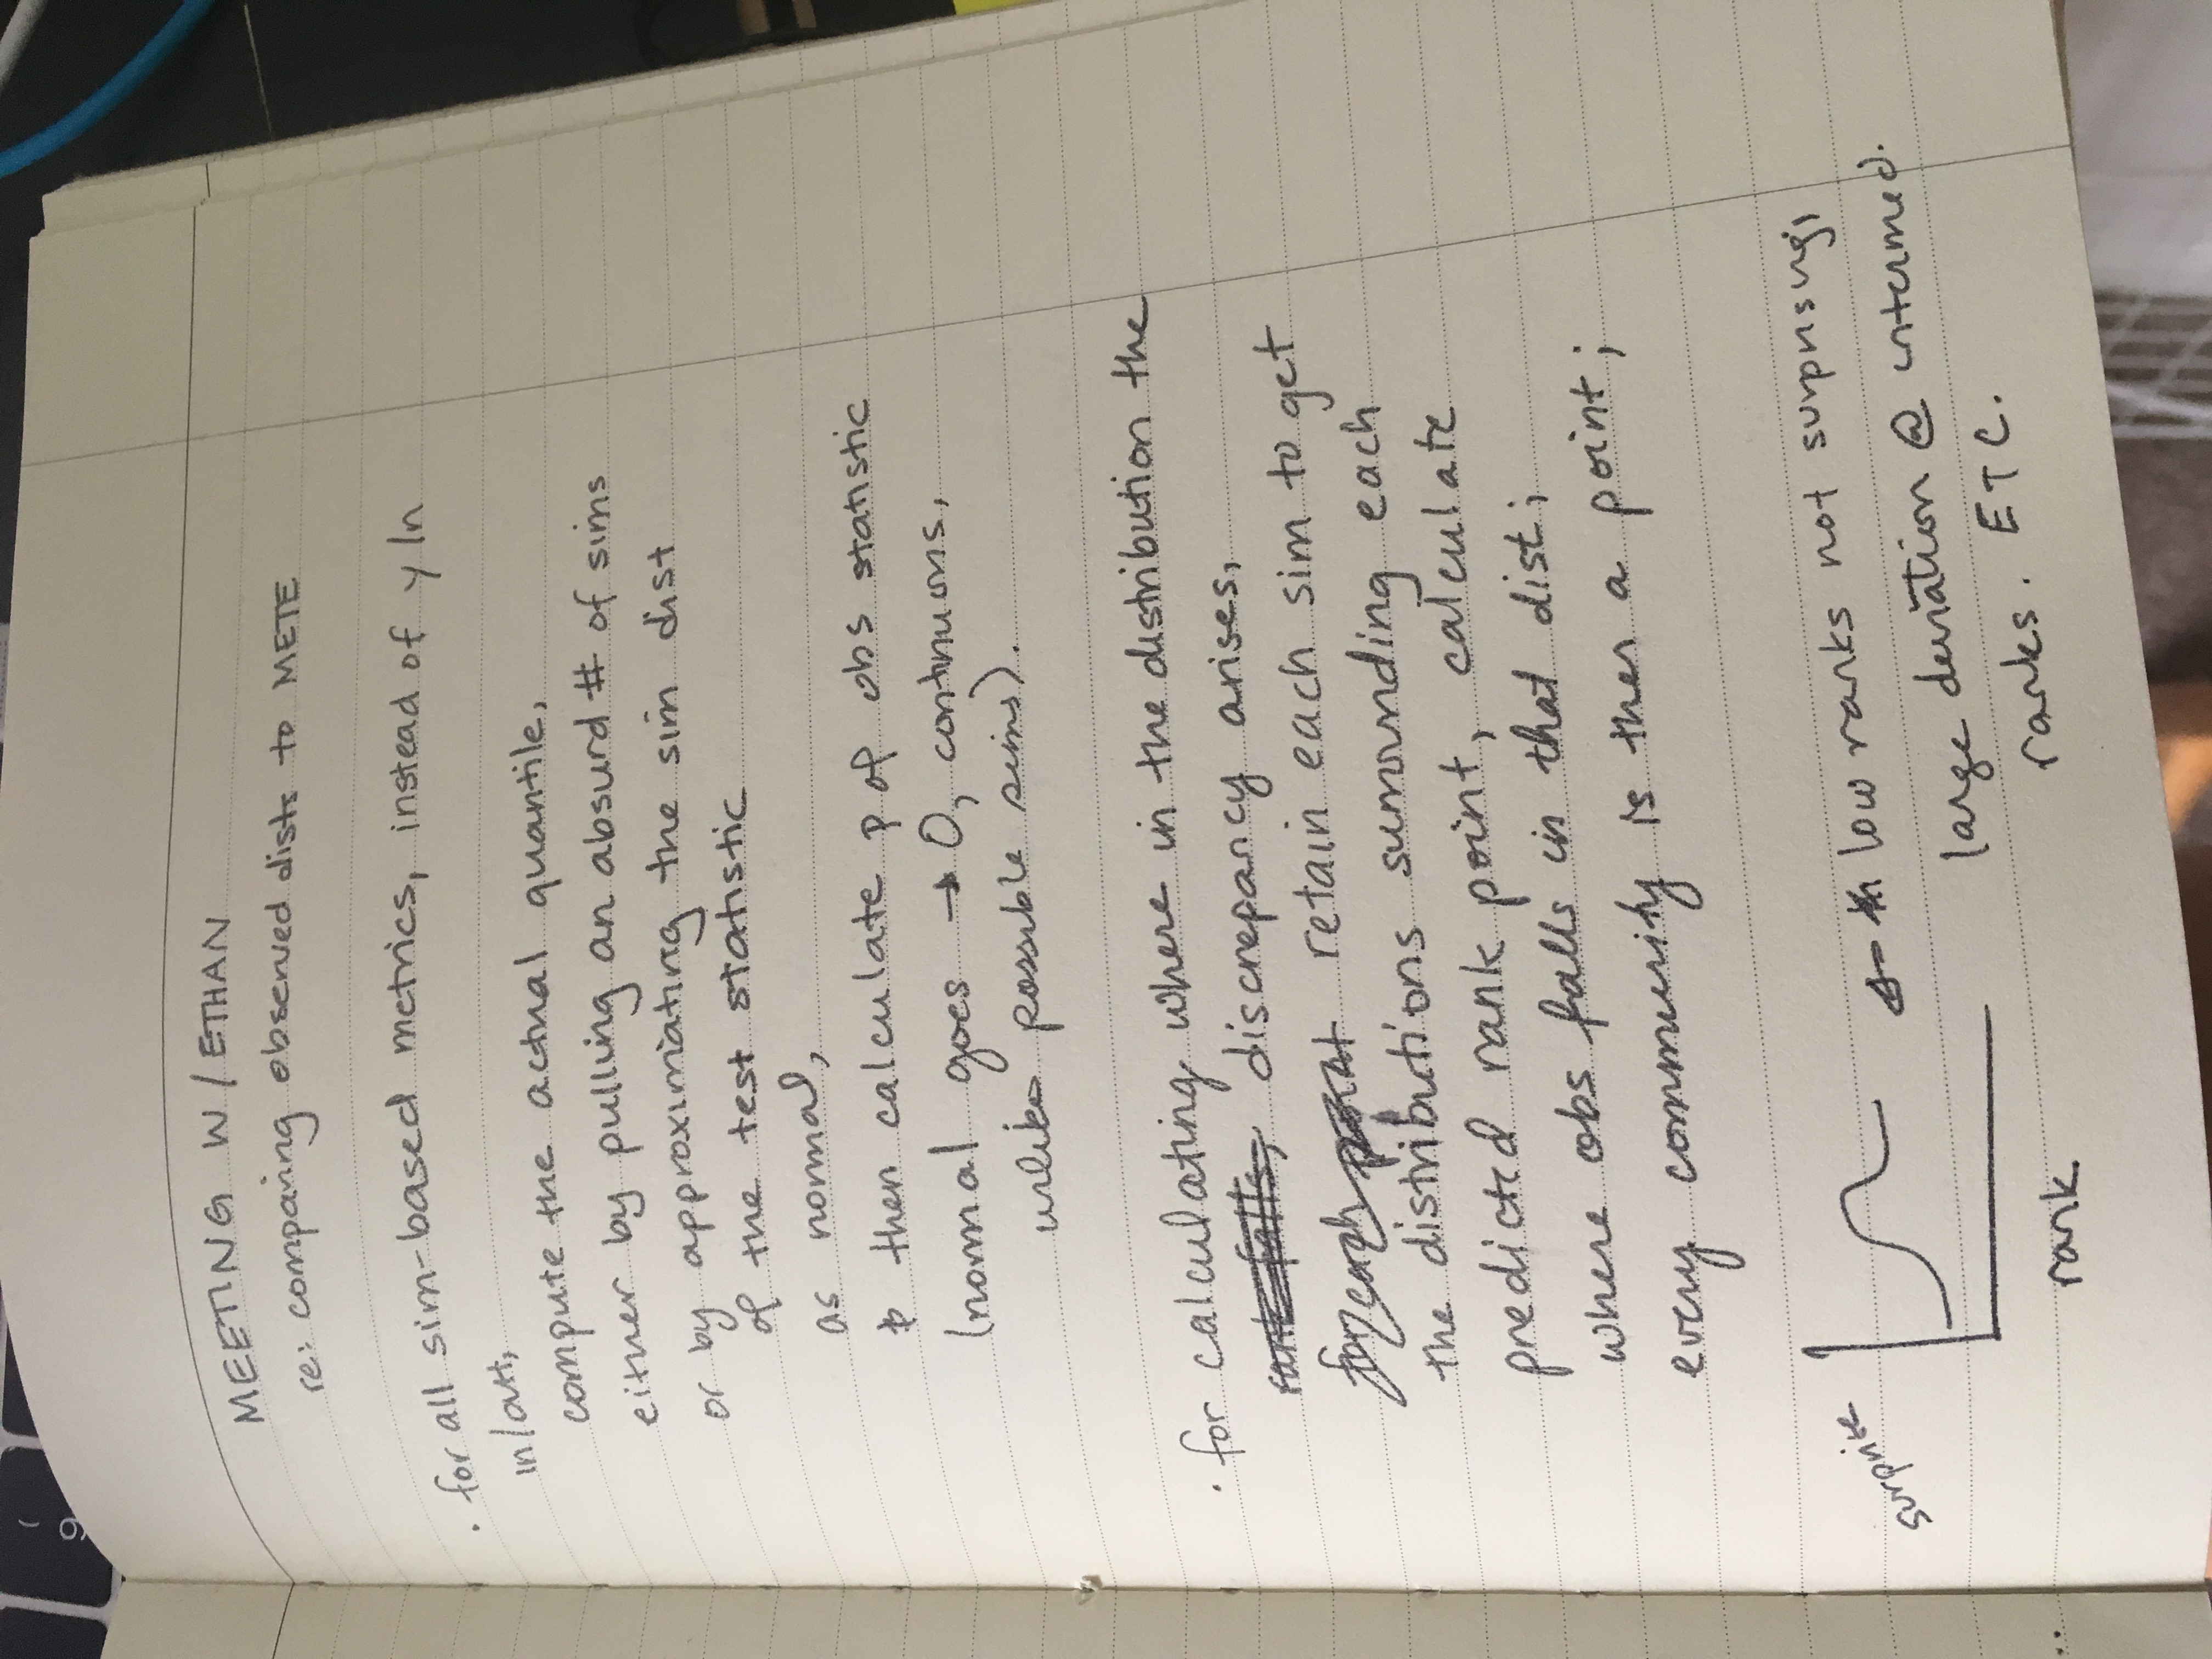 MEETING W/ETHAN
re: comparing observed dists to METE
· for all sim-based metrics, instead of y/n
in/out,
compute the actual quantile,
either by pulling an absurd # of sims
or by approximating the sim dist
of the test statistic
as normal,
& then calculate p of obs statistic
(normal goes → 0, continuous,
unlike possible sims).
· for calculating where in the distribution the
rank falls, discrepancy arises,
for each point retain each sim to get
the distributions surrounding each
predicted rank point, calculate
where obs falls in that dist;
every community is then a point;
surprise
rank
← low ranks not surprising,
large deviation @ intermed.
ranks. ETC.
9